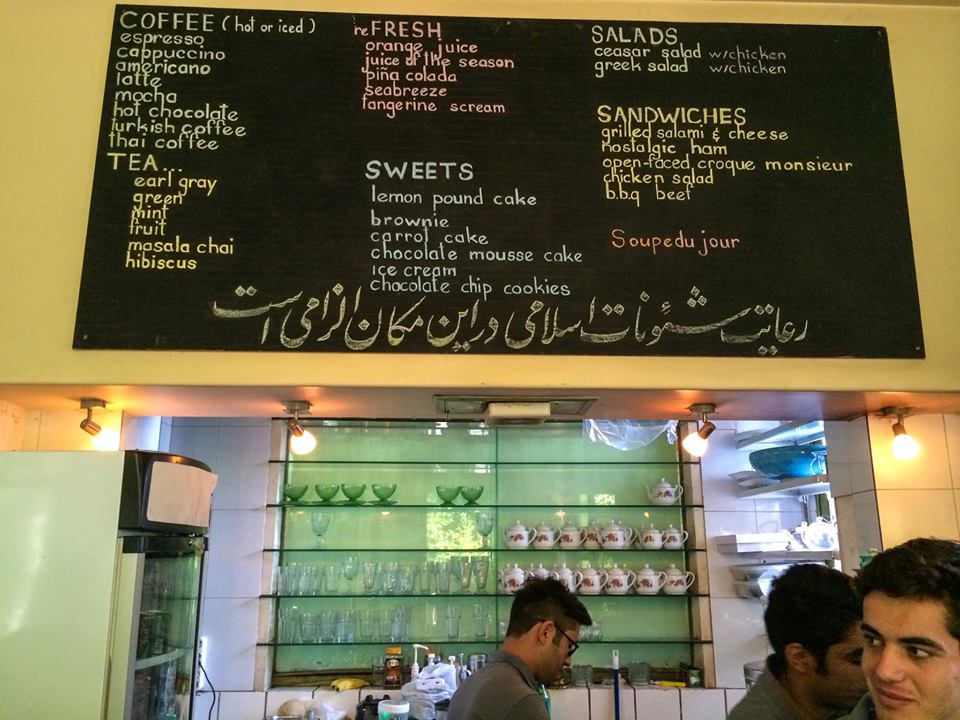 COFFEE (hot or iced)
espresso
cappuccino
americano
latte
mocha
hot chocolate
turkish coffee
thai coffee
TEA...
earl gray
green
mint
fruit
masala chai
hibiscus
reFRESH
orange juice
juice of the season
piña colada
seabreeze
tangerine scream
SWEETS
lemon pound cake
brownie
carrot cake
chocolate mousse cake
ice cream
chocolate chip cookies
SALADS
ceasar salad w/chicken
greek salad w/chicken
SANDWICHES
grilled salami & cheese
nostalgic ham
open-faced croque monsieur
chicken salad
b.b.q beef
Soupe du jour
رعایت شئونات اسلامی در این مکان الزامی است